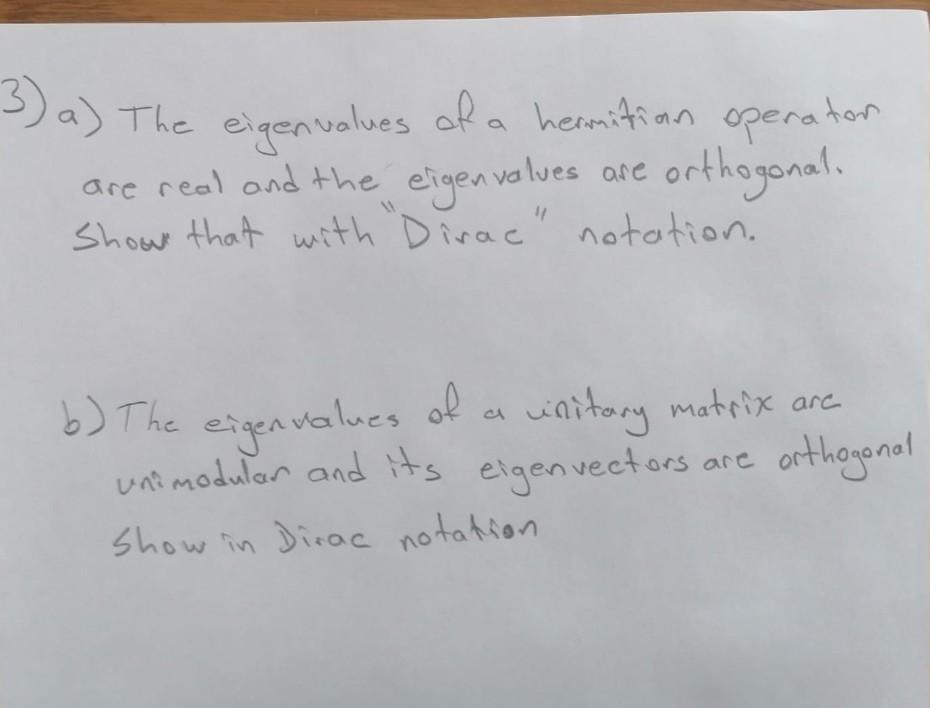 3) a) The eigenvalues of a hermitian operator
are real and the eigenvalues are orthogonal.
Show that with "Dirac" notation.
b) The eigenvalues of a unitary matrix are
unimodular and its eigenvectors are orthogonal
Show in Dirac notation